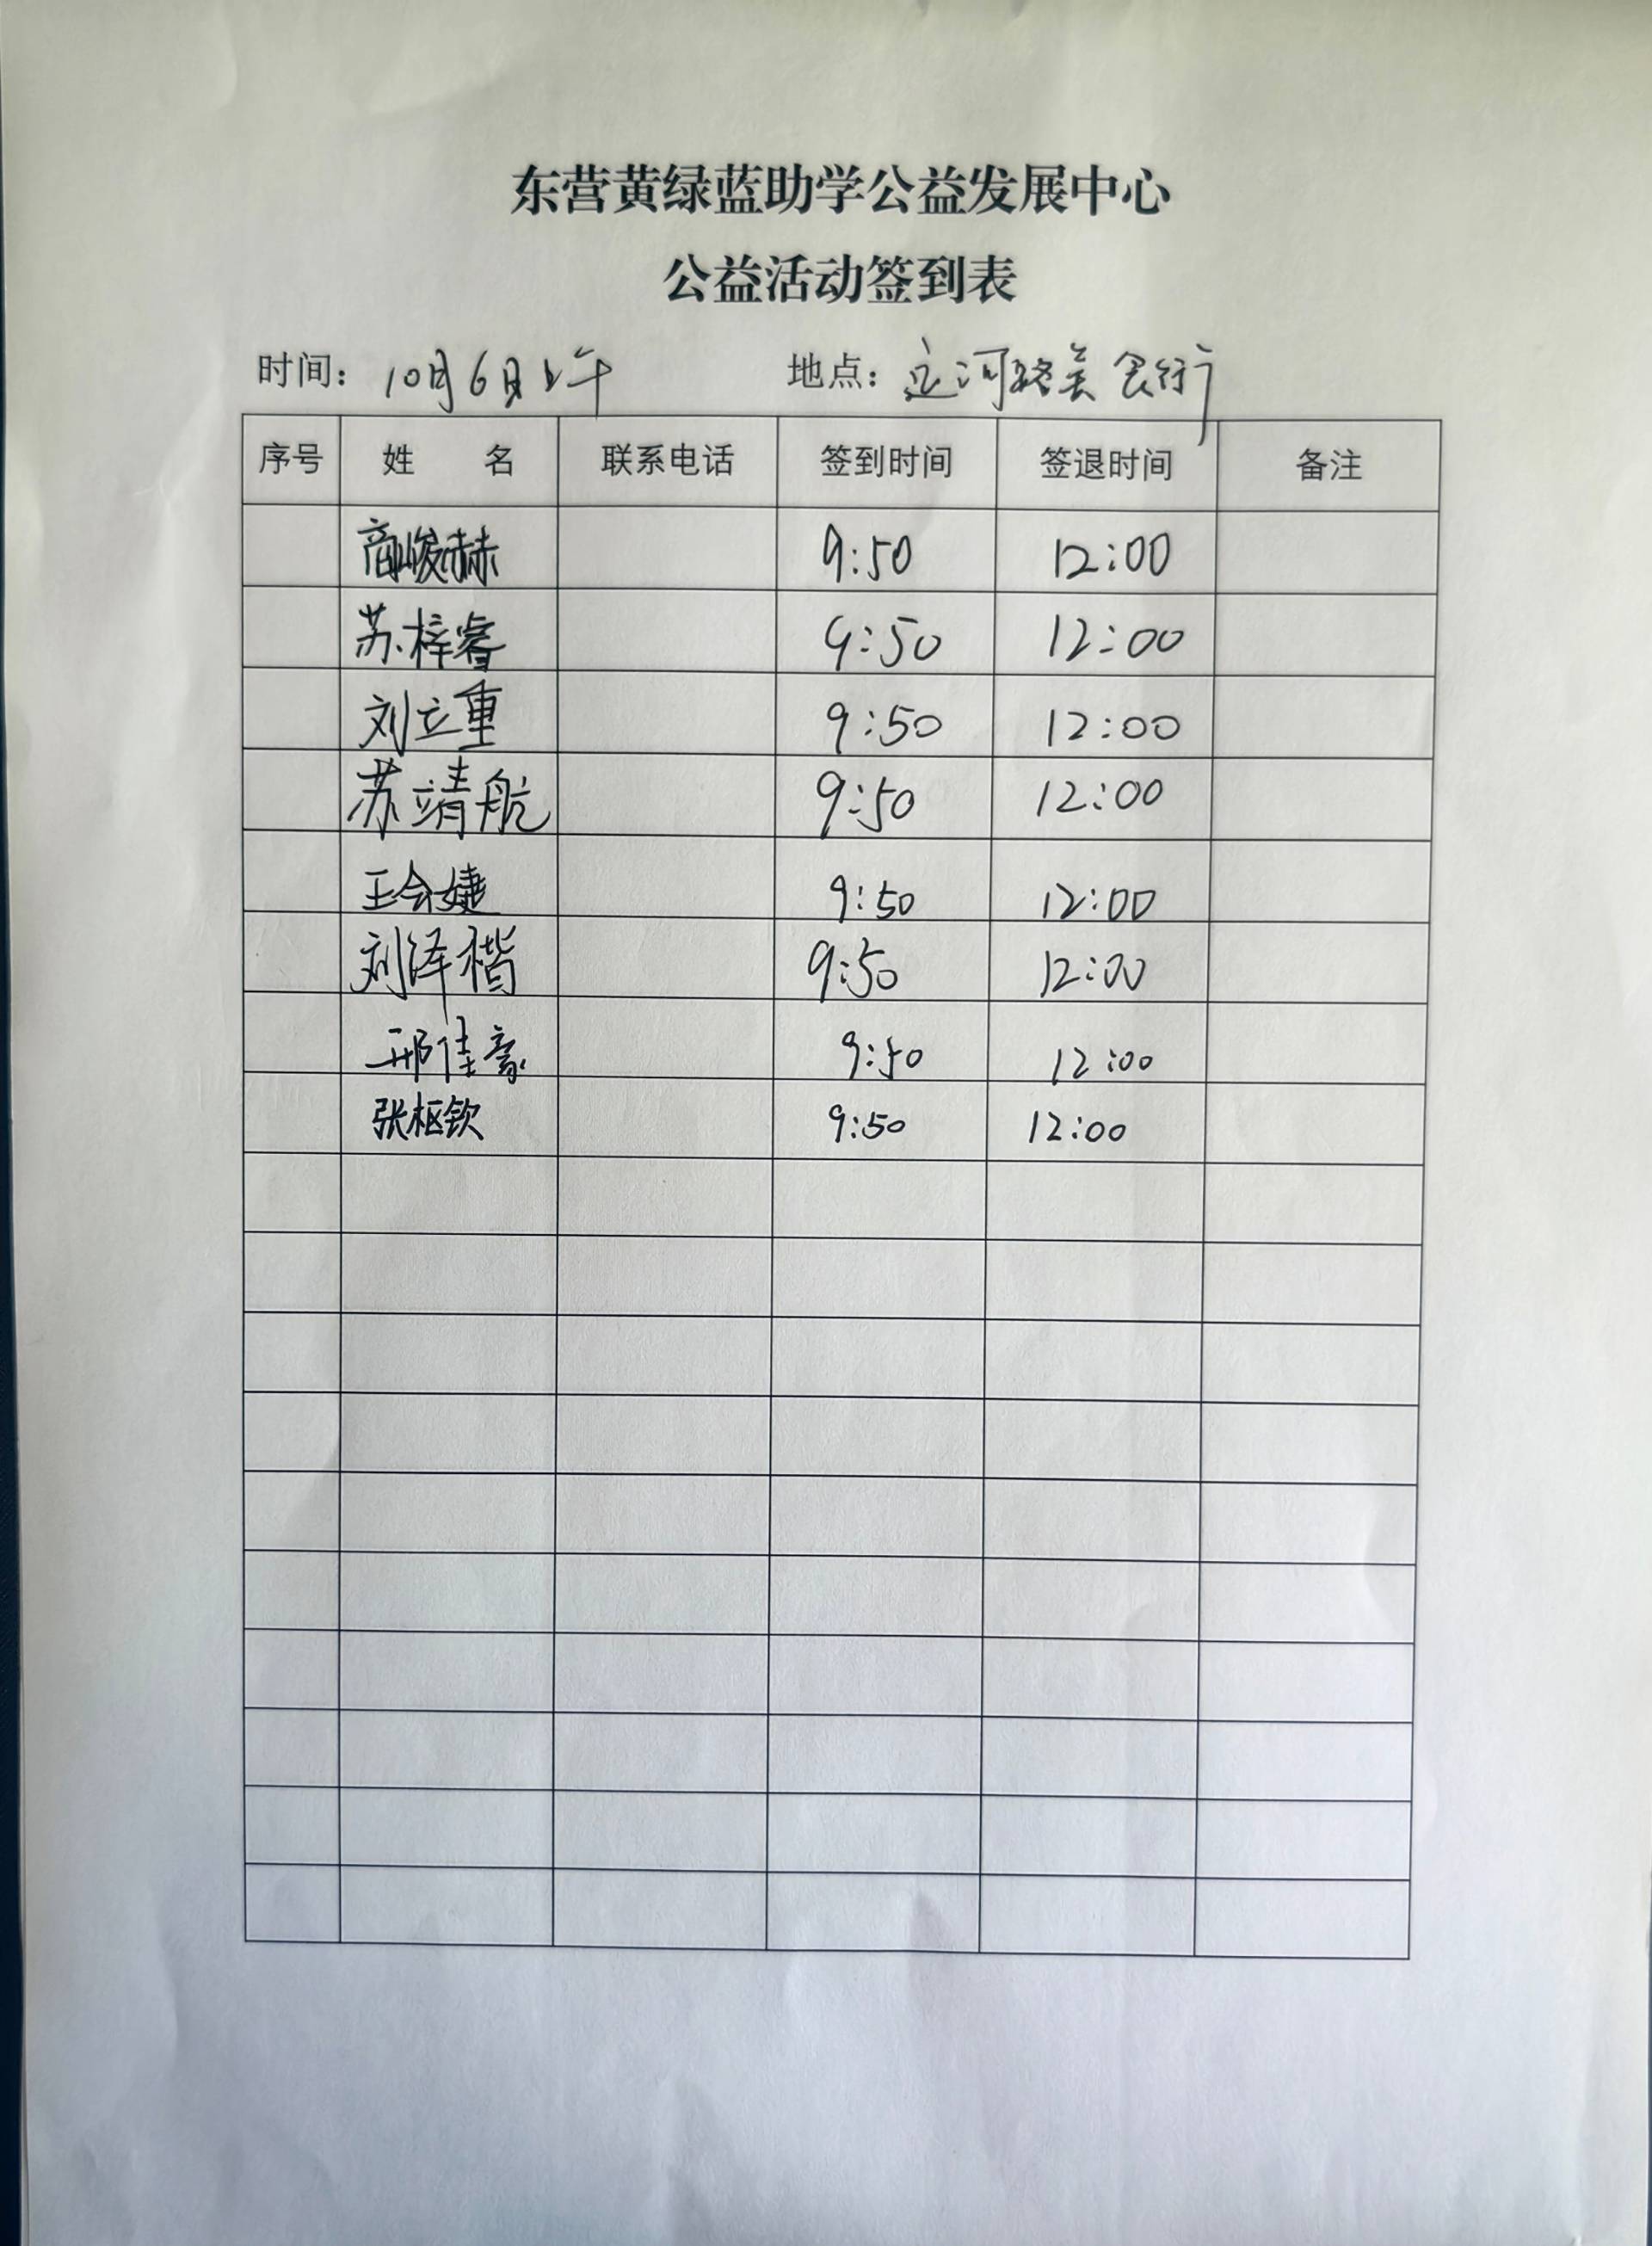 东营黄绿蓝助学公益发展中心
公益活动签到表
时间：10月6日上午 地点：运河路美食街
序号 姓 名 联系电话 签到时间 签退时间 备注
商峻赫 9:50 12:00
苏梓睿 9:50 12:00
刘立重 9:50 12:00
苏靖航 9:50 12:00
王会婕 9:50 12:00
刘泽楷 9:50 12:00
邢佳豪 9:50 12:00
张枢钦 9:50 12:00